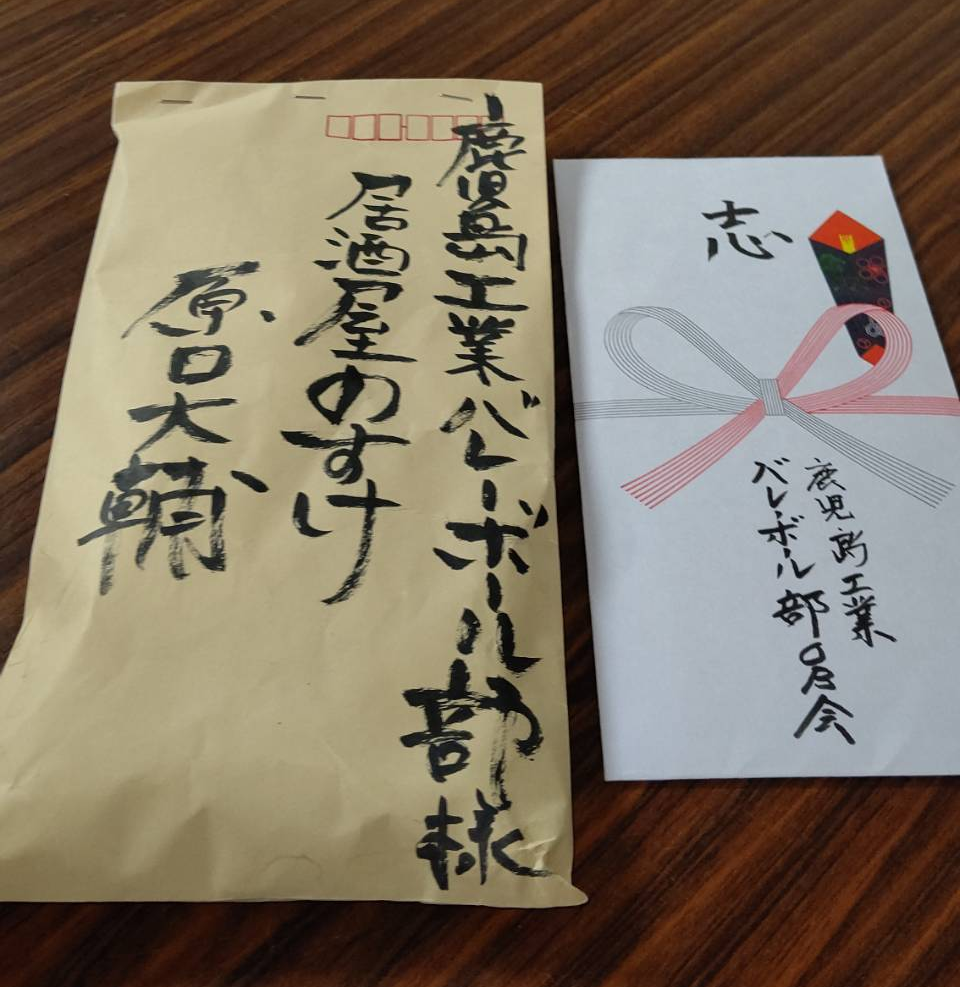 鹿児島工業バレーボール部様
居酒屋のすけ
原口大輔
志
鹿児島工業
バレーボール部OB会